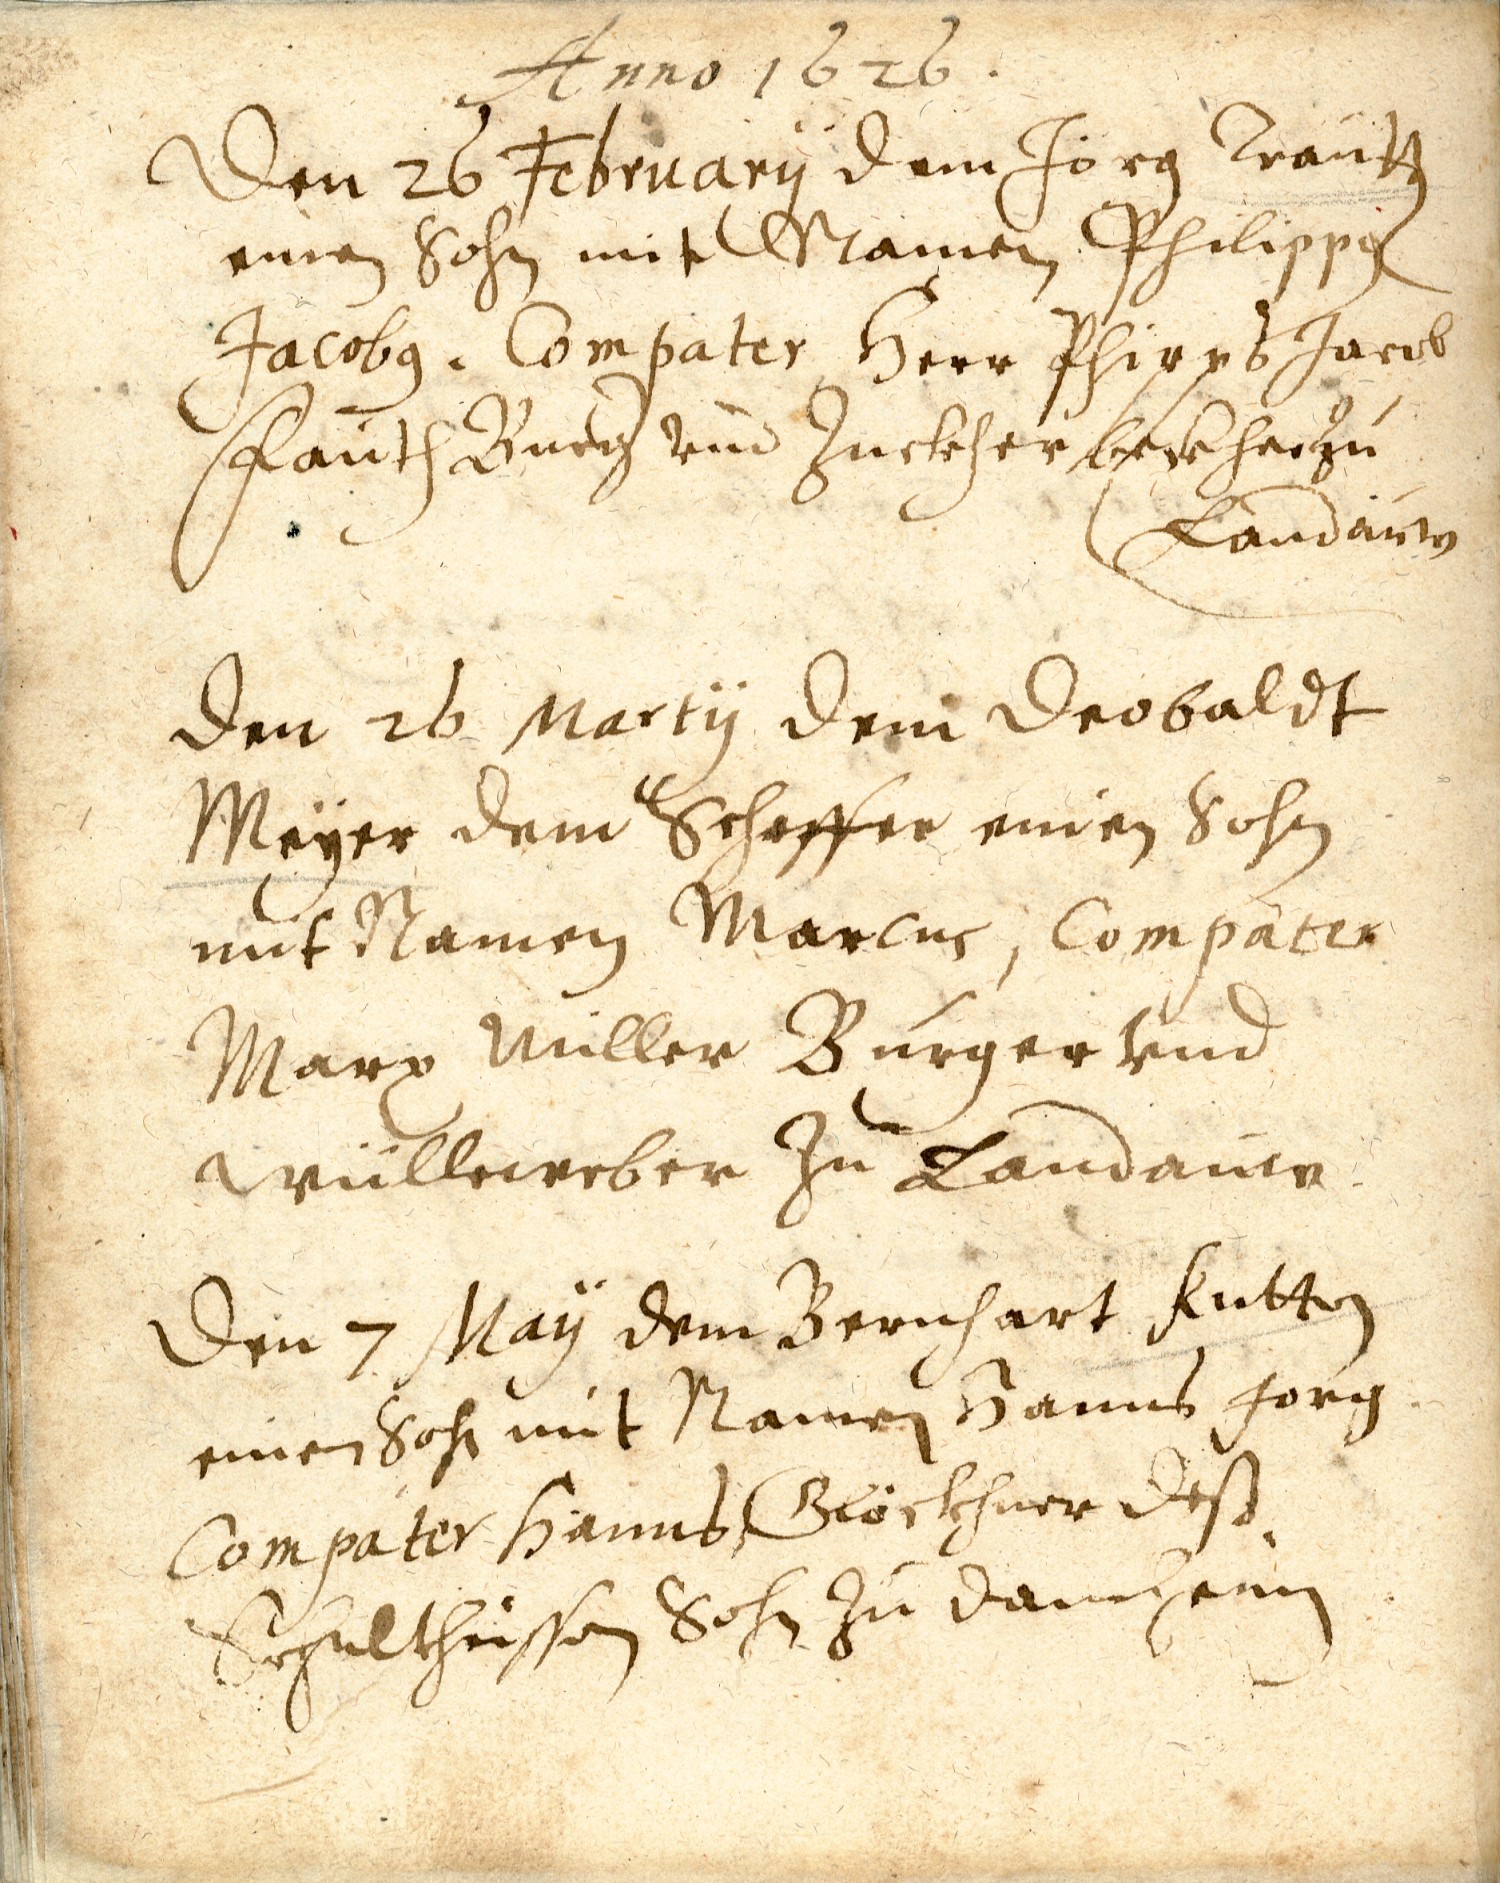 Anno 1626.
Den 26 Februarij dem Jörg Trautz
einen Sohn mit Namen Philippus
Jacobus. Compater Herr Phips Jacob
Fauth Burg. vnd Zuckherbeckher zu
Landauw
Den 26 Martij dem Deobaldt
Meÿer dem Scheffer einen Sohn
mit Namen Marcus, Compater
Marx Müller Burger vnd
Wülleweber Zu Landauw.
Den 7 Maÿ dem Bernhart
einen Sohn mit Namen Hanns Jorg
Compater Hanns Glöckhner deß
Schultheissen Sohn Zu Damheim